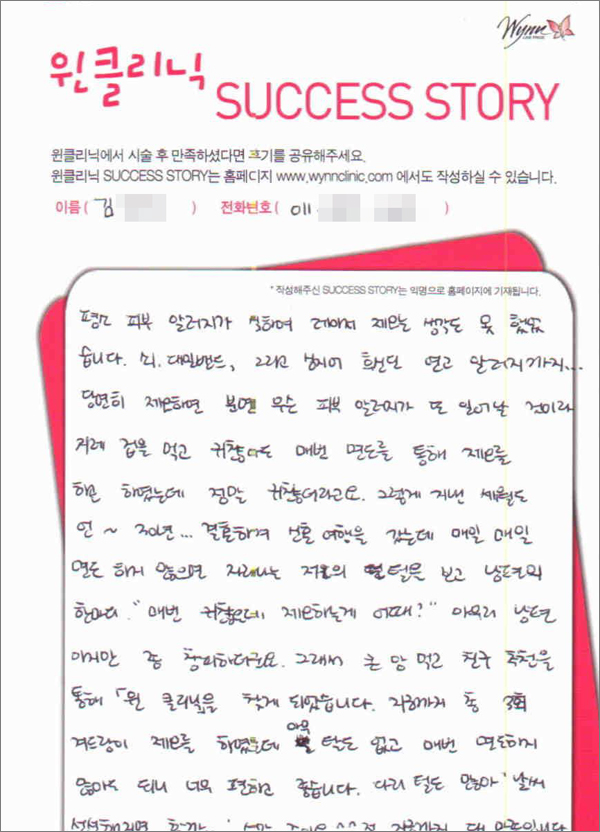 Wynn
윈클리닉
SUCCESS STORY
윈클리닉에서 시술 후 만족하셨다면 후기를 공유해주세요.
윈클리닉 SUCCESS STORY는 홈페이지 www.wynnclinic.com 에서도 작성하실 수 있습니다.
이름 ( 김 ) 전화번호 ( 011 - )
* 작성해주신 SUCCESS STORY는 익명으로 홈페이지에 기재됩니다.
평소 피부 알러지가 심하여 레이저 제모는 생각도 못 했었
습니다. 쇠, 대일밴드, 그리고 심지어 흰 연고 알러지까지...
당연히 제모하면 분명 무슨 피부 알러지가 또 일어날 것이라
지레 겁을 먹고 귀찮아도 매번 면도를 통해 제모를
하였는데 정말 귀찮더라고요. 그렇게 지낸 세월도
언 ~ 30년... 결혼하여 신혼 여행을 갔는데 매일 매일
면도 하지 않으면 자라나는 저의 털을 보고 남편의
한마디. "매번 귀찮은데 제모하는게 어때?" 아무리 남편
이지만 좀 창피하더군요. 그래서 큰 맘 먹고 친구 추천을
통해 「윈 클리닉」을 찾게 되었습니다. 지금까지 총 3회
겨드랑이 제모를 하였는데 아욱 털도 없고 매번 면도하지
않아도 되니 너무 편하고 좋습니다. 다리 털도 많아 날씨